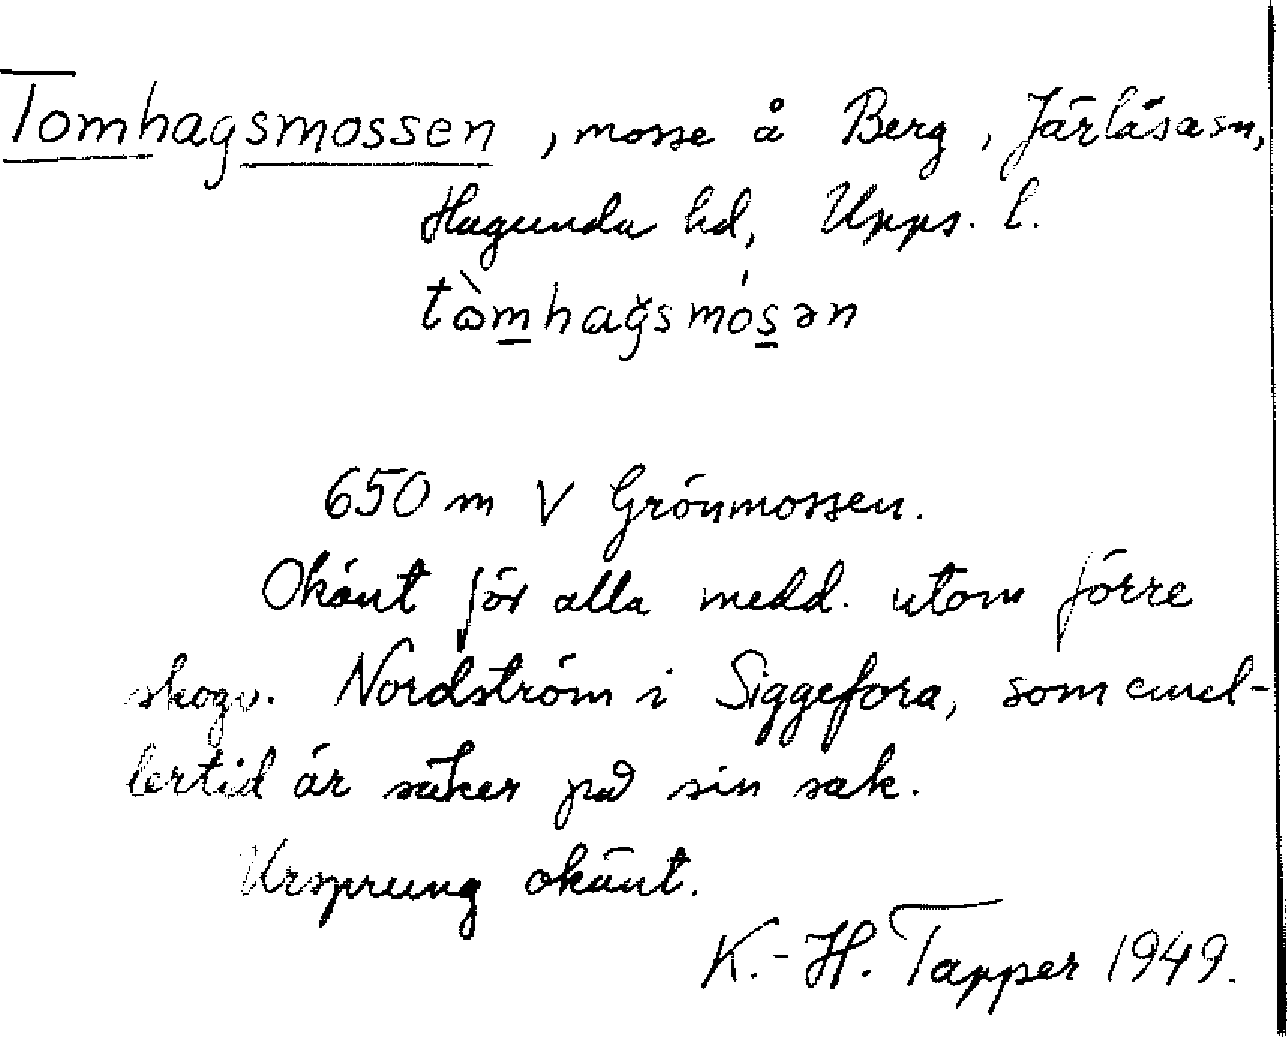 Tomhagsmossen, mosse å Berg, Järlåsa sn,
Hagunda hd, Upps. l.
tòmhağsmósən
650 m V Grönmossen.
Okänt för alla medd. utom förre
skogv. Nordström i Siggefora, som emel-
lertid är säker på sin sak.
Ursprung okänt.
K.-H. Tapper 1949.